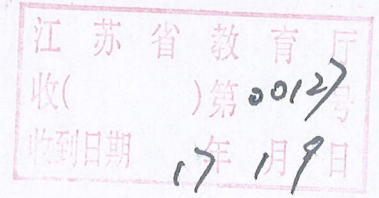 江苏省教育厅
收( )第00127号
收到日期 17年1月9日